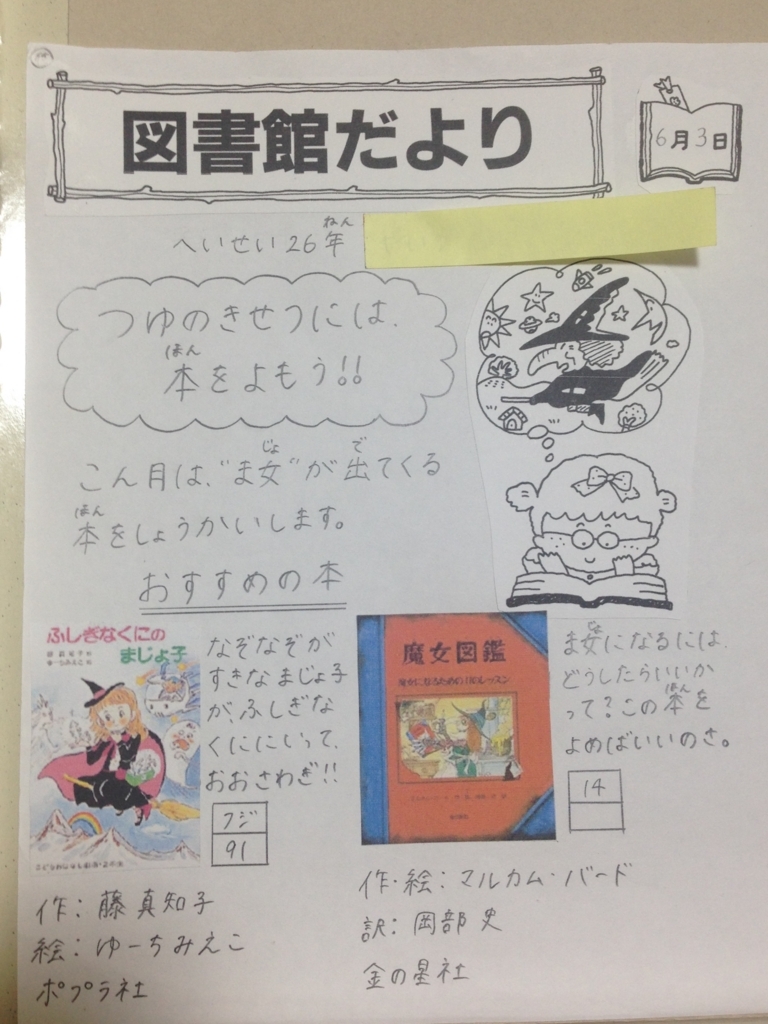 図書館だより
6月3日
へいせい26年
ねん
つゆのきせつには、
本をよもう!!
ほん
こん月は、"ま女"が出てくる
じょ
で
本をしょうかいします。
ほん
おすすめの本
ふしぎなくにの
まじょ子
なぞなぞが
すきなまじょ子
が、ふしぎな
くににいって、
おおさわぎ!!
フジ
91
作:藤真知子
絵:ゆーちみえこ
ポプラ社
魔女図鑑
魔女になるための11のレッスン
ま女になるには、
じょ
どうしたらいいか
って?この本を
ほん
よめばいいのさ。
14
作・絵:マルカム・バード
訳:岡部史
金の星社